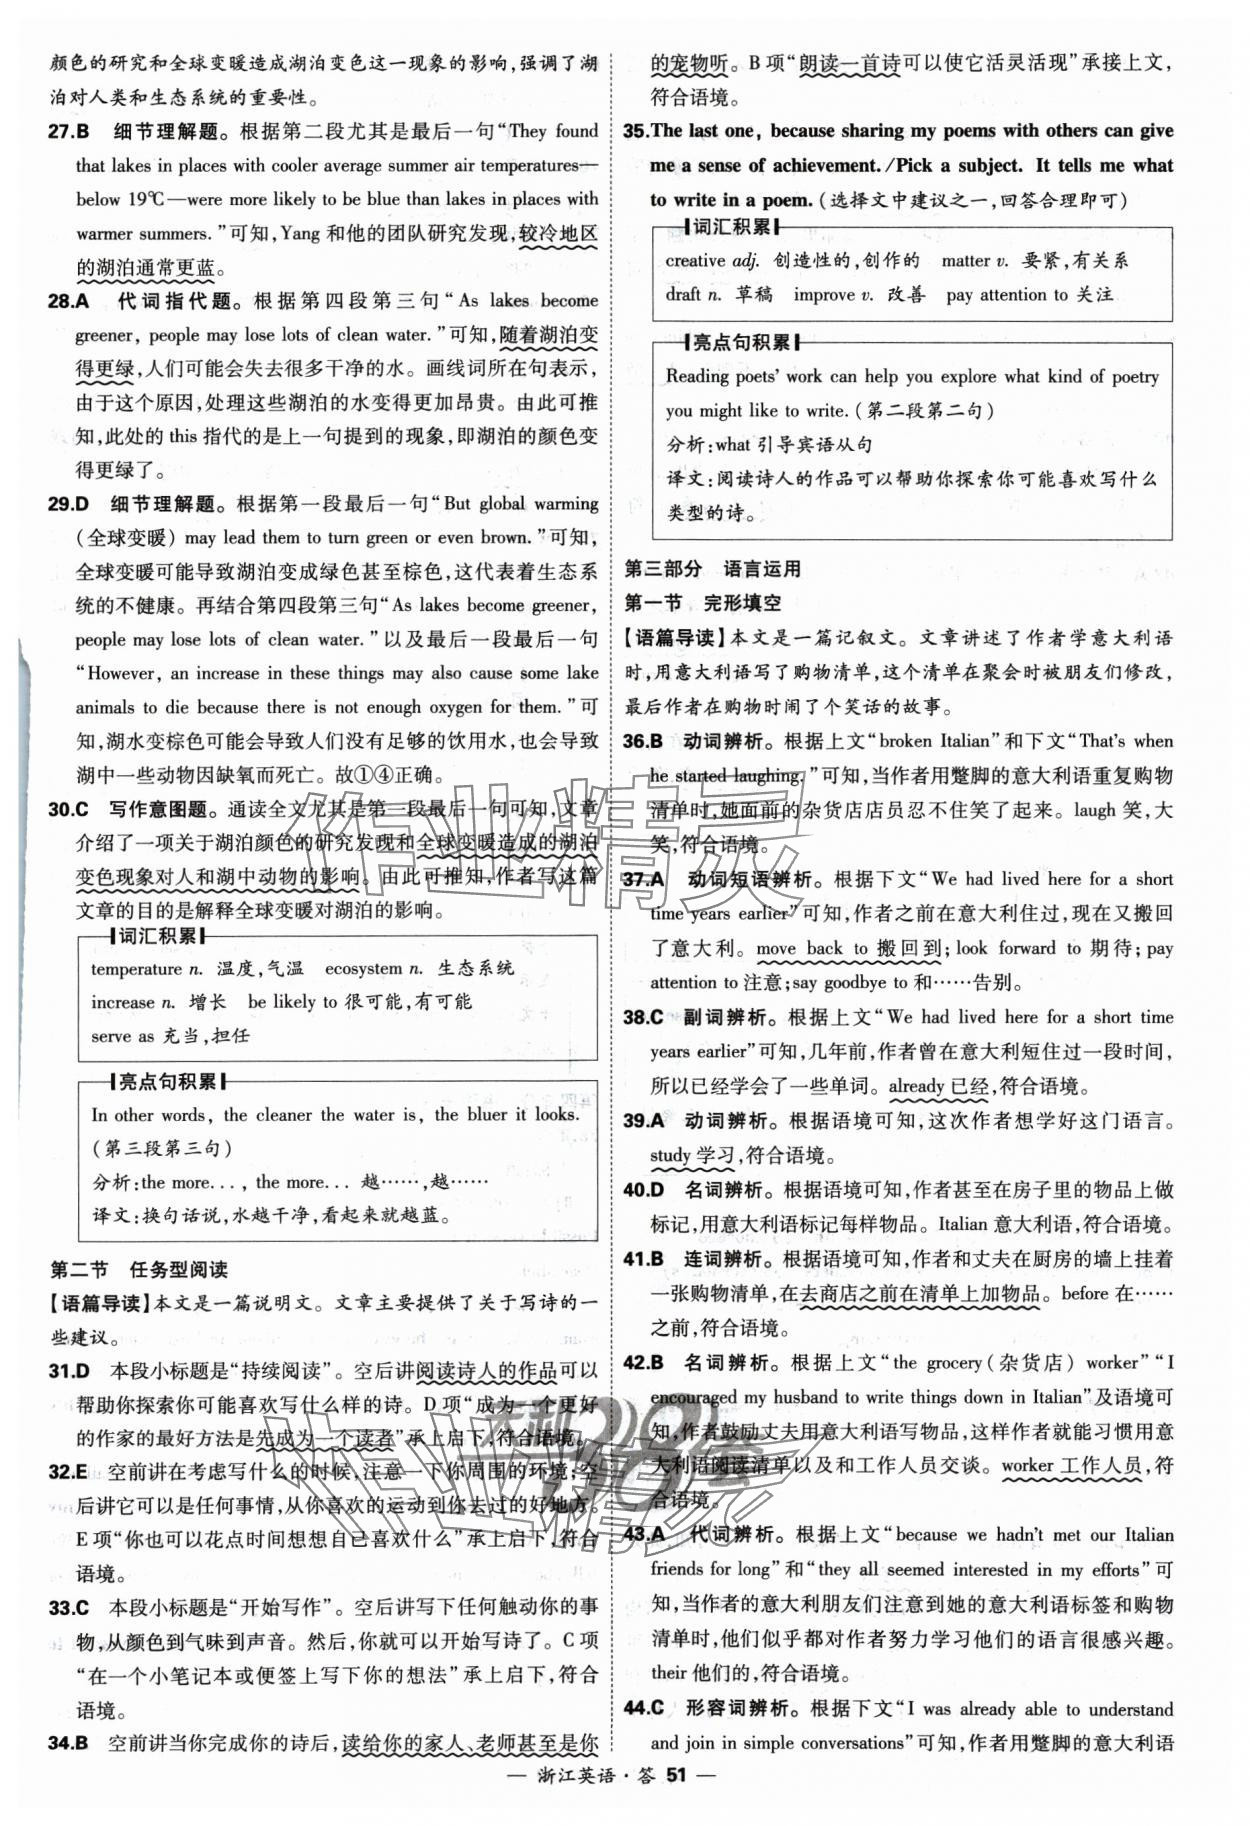 颜色的研究和全球变暖造成湖泊变色这一现象的影响,强调了湖
泊对人类和生态系统的重要性。
27.B 细节理解题。根据第二段尤其是最后一句“They found
that lakes in places with cooler average summer air temperatures—
below 19℃—were more likely to be blue than lakes in places with
warmer summers.”可知,Yang 和他的团队研究发现,较冷地区
的湖泊通常更蓝。
28.A 代词指代题。根据第四段第三句“As lakes become
greener, people may lose lots of clean water.”可知,随着湖泊变
得更绿,人们可能会失去很多干净的水。画线词所在句表示,
由于这个原因,处理这些湖泊的水变得更加昂贵。由此可推
知,此处的 this 指代的是上一句提到的现象,即湖泊的颜色变
得更绿了。
29.D 细节理解题。根据第一段最后一句“But global warming
(全球变暖) may lead them to turn green or even brown.”可知,
全球变暖可能导致湖泊变成绿色甚至棕色,这代表着生态系
统的不健康。再结合第四段第三句“As lakes become greener,
people may lose lots of clean water.”以及最后一段最后一句
“However, an increase in these things may also cause some lake
animals to die because there is not enough oxygen for them.”可
知,湖水变棕色可能会导致人们没有足够的饮用水,也会导致
湖中一些动物因缺氧而死亡。故①④正确。
30.C 写作意图题。通读全文尤其是第三段最后一句可知,文章
介绍了一项关于湖泊颜色的研究发现和全球变暖造成的湖泊
变色现象对人和湖中动物的影响。由此可推知,作者写这篇
文章的目的是解释全球变暖对湖泊的影响。
词汇积累
temperature n. 温度,气温 ecosystem n. 生态系统
increase n. 增长 be likely to 很可能,有可能
serve as 充当,担任
亮点句积累
In other words, the cleaner the water is, the bluer it looks.
(第三段第三句)
分析:the more..., the more... 越……,越……
译文:换句话说,水越干净,看起来就越蓝。
第二节 任务型阅读
【语篇导读】本文是一篇说明文。文章主要提供了关于写诗的一
些建议。
31.D 本段小标题是“持续阅读”。空后讲阅读诗人的作品可以
帮助你探索你可能喜欢写什么样的诗。D 项“成为一个更好
的作家的最好方法是先成为一个读者”承上启下,符合语境。
32.E 空前讲在考虑写什么的时候,注意一下你周围的环境;空
后讲它可以是任何事情,从你喜欢的运动到你去过的好地方。
E 项“你也可以花点时间想想自己喜欢什么”承上启下,符合
语境。
33.C 本段小标题是“开始写作”。空后讲写下任何触动你的事
物,从颜色到气味到声音。然后,你就可以开始写诗了。C 项
“在一个小笔记本或便签上写下你的想法”承上启下,符合
语境。
34.B 空前讲当你完成你的诗后,读给你的家人、老师甚至是你
的宠物听。B 项“朗读一首诗可以使它活灵活现”承接上文,
符合语境。
35.The last one, because sharing my poems with others can give
me a sense of achievement./Pick a subject. It tells me what
to write in a poem.(选择文中建议之一,回答合理即可)
词汇积累
creative adj. 创造性的,创作的 matter v. 要紧,有关系
draft n. 草稿 improve v. 改善 pay attention to 关注
亮点句积累
Reading poets’ work can help you explore what kind of poetry
you might like to write.(第二段第二句)
分析:what 引导宾语从句
译文:阅读诗人的作品可以帮助你探索你可能喜欢写什么
类型的诗。
第三部分 语言运用
第一节 完形填空
【语篇导读】本文是一篇记叙文。文章讲述了作者学意大利语
时,用意大利语写了购物清单,这个清单在聚会时被朋友们修改,
最后作者在购物时闹了个笑话的故事。
36.B 动词辨析。根据上文“broken Italian”和下文“That’s when
he started laughing.”可知,当作者用蹩脚的意大利语重复购物
清单时,她面前的杂货店店员忍不住笑了起来。laugh 笑,大
笑,符合语境。
37.A 动词短语辨析。根据下文“We had lived here for a short
time years earlier”可知,作者之前在意大利住过,现在又搬回
了意大利。move back to 搬回到;look forward to 期待;pay
attention to 注意;say goodbye to 和……告别。
38.C 副词辨析。根据上文“We had lived here for a short time
years earlier”可知,几年前,作者曾在意大利短住过一段时间,
所以已经学会了一些单词。already 已经,符合语境。
39.A 动词辨析。根据语境可知,这次作者想学好这门语言。
study 学习,符合语境。
40.D 名词辨析。根据语境可知,作者甚至在房子里的物品上做
标记,用意大利语标记每样物品。Italian 意大利语,符合语境。
41.B 连词辨析。根据语境可知,作者和丈夫在厨房的墙上挂着
一张购物清单,在去商店之前在清单上加物品。before 在……
之前,符合语境。
42.B 名词辨析。根据上文“the grocery(杂货店) worker”“I
encouraged my husband to write things down in Italian”及语境可
知,作者鼓励丈夫用意大利语写物品,这样作者就能习惯用意
大利语阅读清单以及和工作人员交谈。worker 工作人员,符
合语境。
43.A 代词辨析。根据上文“because we hadn’t met our Italian
friends for long”和“they all seemed interested in my efforts”可
知,当作者的意大利朋友们注意到她的意大利语标签和购物
清单时,他们似乎都对作者努力学习他们的语言很感兴趣。
their 他们的,符合语境。
44.C 形容词辨析。根据下文“I was already able to understand
and join in simple conversations”可知,作者用蹩脚的意大利语
— 浙江英语·答 51 —
作业精灵
天利38套
作业精灵